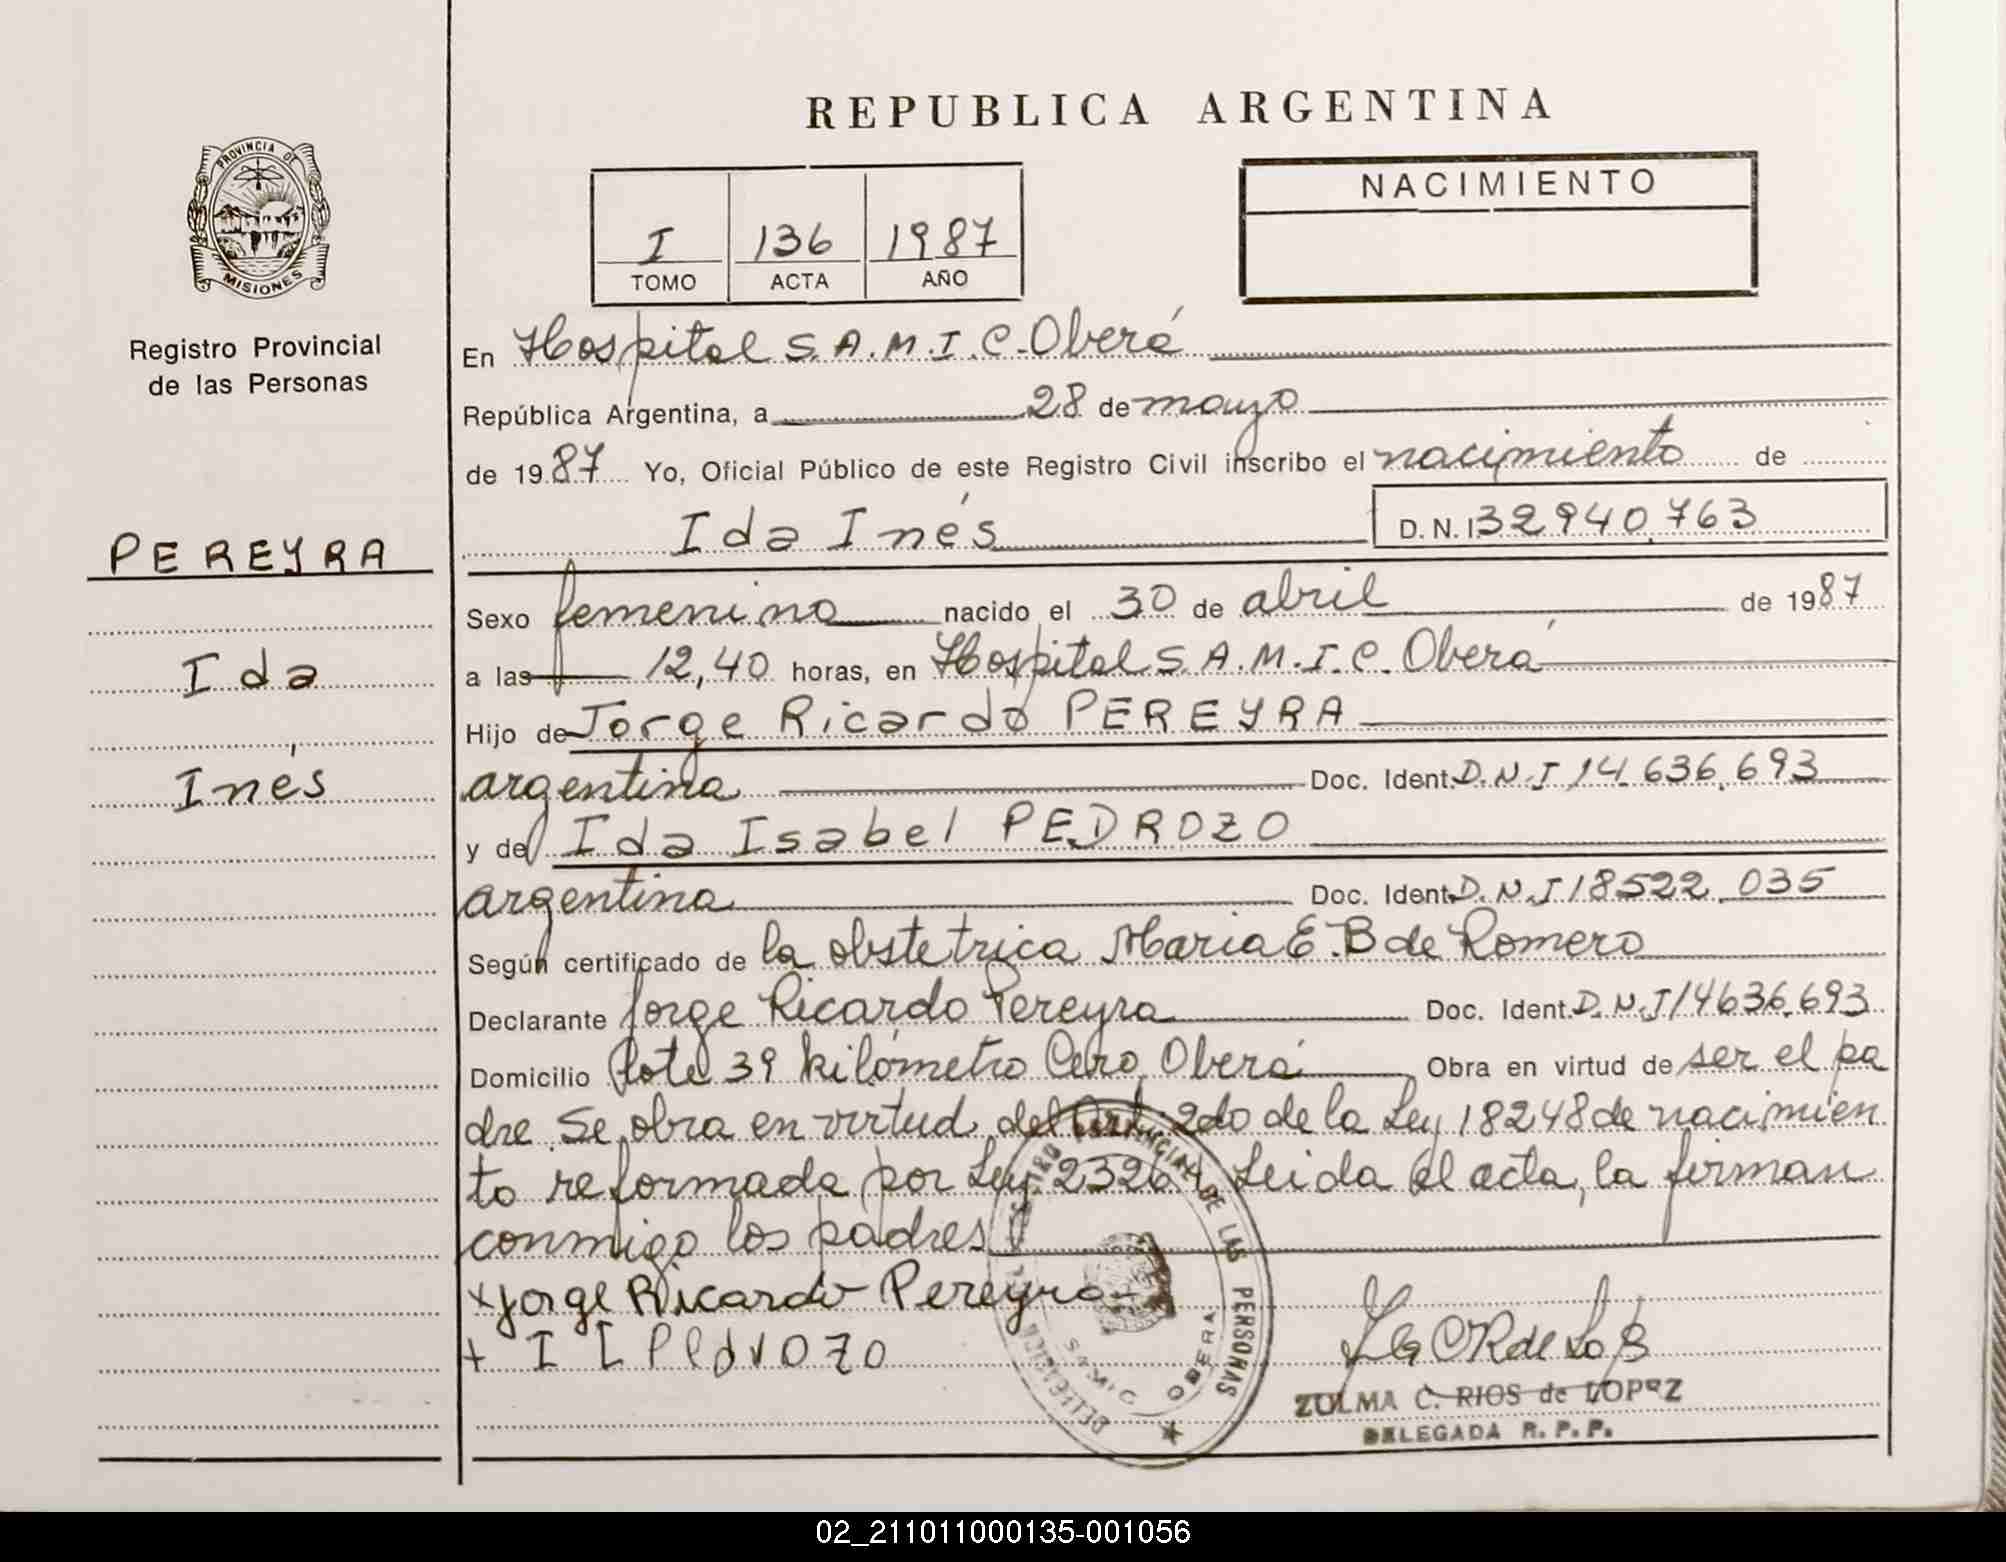 REPUBLICA ARGENTINA
PROVINCIA DE
MISIONES
Registro Provincial
de las Personas
I 136 1987
TOMO ACTA AÑO
NACIMIENTO
En Hospital S.A.M.I.C. Oberá
República Argentina, a 28 de mayo
de 1987 Yo, Oficial Público de este Registro Civil inscribo el nacimiento de
Ida Inés D.N.I 32940.763
PEREYRA
Ida
Inés
Sexo femenino nacido el 30 de abril de 1987
a las 12,40 horas, en Hospital S.A.M.I.C. Oberá
Hijo de Jorge Ricardo PEREYRA
argentina Doc. Ident. D.N.I 14.636.693
y de Ida Isabel PEDROZO
argentina Doc. Ident. D.N.I 18522.035
Según certificado de la obstetrica Maria E. B de Romero
Declarante Jorge Ricardo Pereyra Doc. Ident. D.N.I 14636.693
Domicilio Lote 39 kilómetro Cero, Oberá Obra en virtud de ser el pa
dre. Se obra en virtud del Art. 2do de la Ley 18248 de nacimien
to reformada por Ley 23264. Leida el acta, la firman
conmigo los padres
+ Jorge Ricardo Pereyra
+ I I Pedrozo
DELEGACION
PROVINCIAL DE LAS PERSONAS
S.A.M.I.C
OBERA
ZULMA C. RIOS de LOPEZ
DELEGADA R.P.P.
02_211011000135-001056